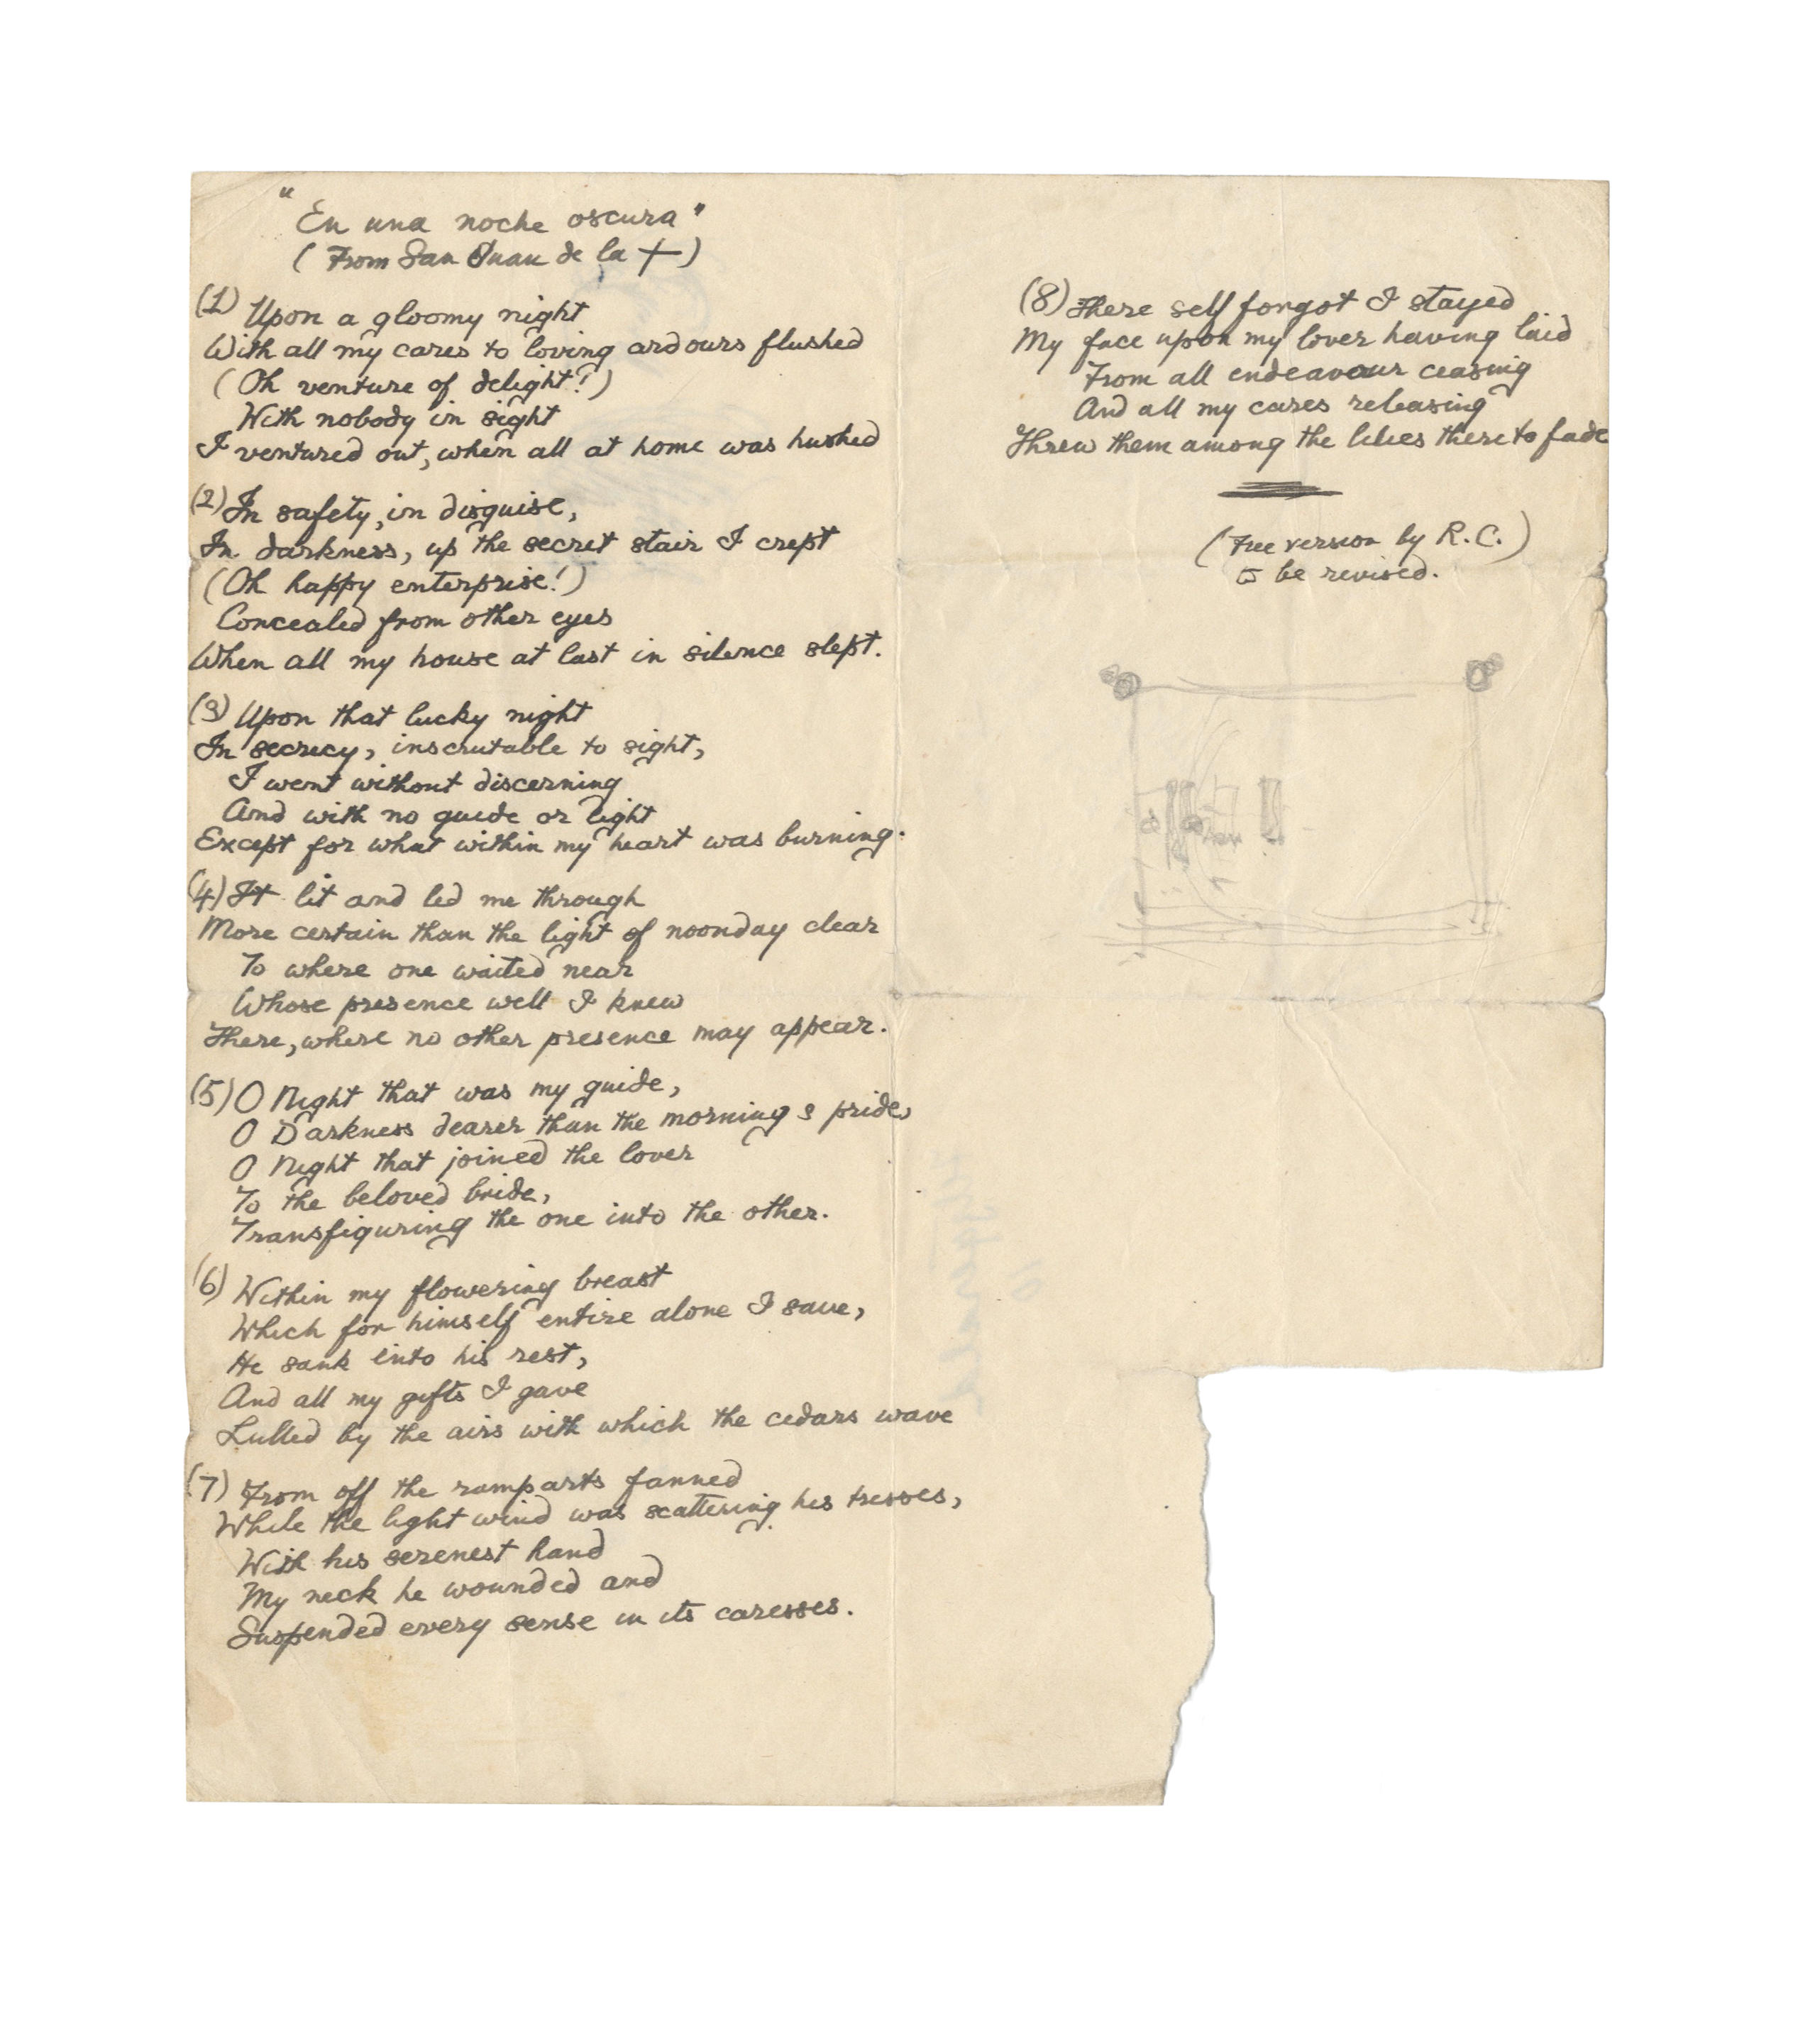 "En una noche oscura"
(From San Juan de la +)
(1) Upon a gloomy night
With all my cares to loving ardours flushed
(Oh venture of delight!)
With nobody in sight
I ventured out, when all at home was hushed
(2) In safety, in disguise,
In darkness, up the secret stair I crept
(Oh happy enterprise!)
Concealed from other eyes
When all my house at last in silence slept.
(3) Upon that lucky night
In secrecy, inscrutable to sight,
I went without discerning
And with no guide or light
Except for what within my heart was burning.
(4) It lit and led me through
More certain than the light of noonday clear
To where one waited near
Whose presence well I knew
There, where no other presence may appear.
(5) O Night that was my guide,
O Darkness dearer than the morning s pride,
O Night that joined the lover
To the beloved bride,
Transfiguring the one into the other.
(6) Within my flowering breast
Which for himself entire alone I save,
He sank into his rest,
And all my gifts I gave
Lulled by the airs with which the cedars wave
(7) From off the ramparts fanned
While the light wind was scattering his tresses,
With his serenest hand
My neck he wounded and
Suspended every sense in its caresses.
(8) There self forgot I stayed
My face upon my lover having laid
From all endeavour ceasing
And all my cares releasing
Threw them among the lilies there to fade
(Free version by R.C.)
to be revised.